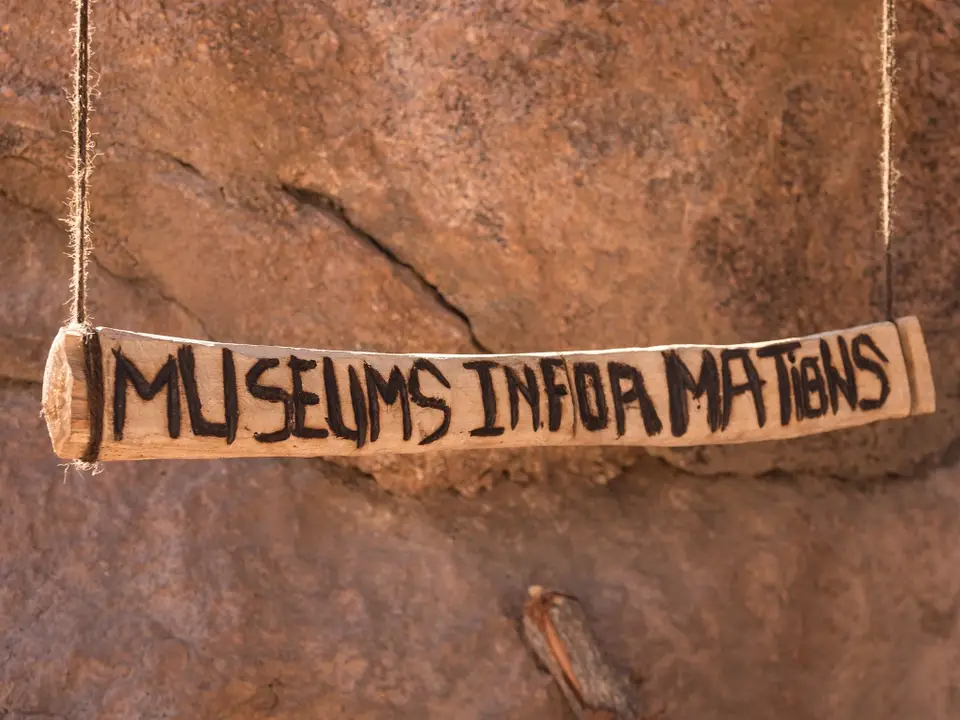 MUSEUMS INFORMATiONS